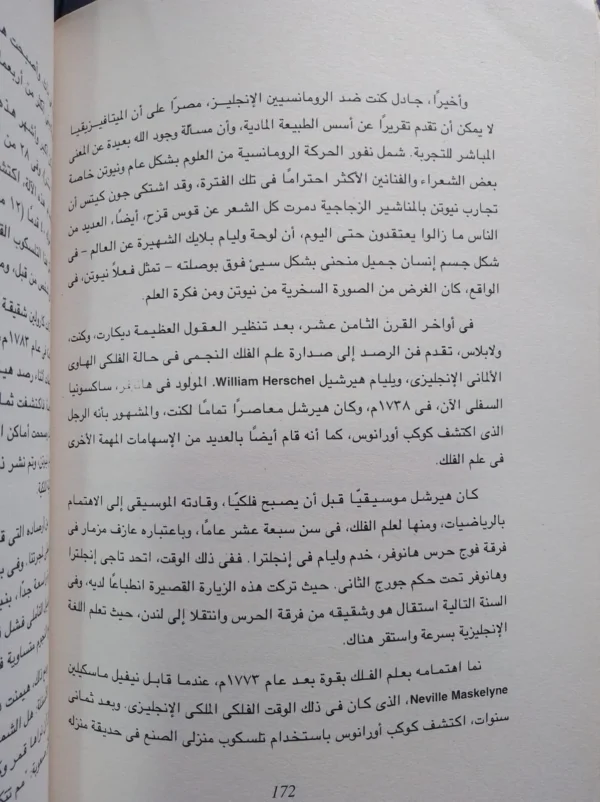 وأخيرًا، جادل كنت ضد الرومانسيين الإنجليز، مصرًا على أن الميتافيزيقيا
لا يمكن أن تقدم تقريرًا عن أسس الطبيعة المادية، وأن مسألة وجود الله بعيدة عن المعنى
المباشر للتجربة. شمل نفور الحركة الرومانسية من العلوم بشكل عام ونيوتن خاصة
بعض الشعراء والفنانين الأكثر احترامًا فى تلك الفترة، وقد اشتكى جون كيتس أن
تجارب نيوتن بالمناشير الزجاجية دمرت كل الشعر عن قوس قزح، أيضًا، العديد من
الناس ما زالوا يعتقدون حتى اليوم، أن لوحة وليام بلايك الشهيرة عن العالم – فى
شكل جسم إنسان جميل منحنى بشكل سيئ فوق بوصلته – تمثل فعلاً نيوتن، فى
الواقع، كان الغرض من الصورة السخرية من نيوتن ومن فكرة العلم.
فى أواخر القرن الثامن عشر، بعد تنظير العقول العظيمة ديكارت، وكنت،
ولابلاس، تقدم فن الرصد إلى صدارة علم الفلك النجمى فى حالة الفلكى الهاوى
الألمانى الإنجليزى، ويليام هيرشيل William Herschel. المولود فى هانوفر، ساكسونيا
السفلى الآن، فى ١٧٣٨م، وكان هيرشل معاصرًا تمامًا لكنت، والمشهور بأنه الرجل
الذى اكتشف كوكب أورانوس، كما أنه قام أيضًا بالعديد من الإسهامات المهمة الأخرى
فى علم الفلك.
كان هيرشل موسيقيًا قبل أن يصبح فلكيًا، وقادته الموسيقى إلى الاهتمام
بالرياضيات، ومنها لعلم الفلك، فى سن سبعة عشر عامًا، وباعتباره عازف مزمار فى
فرقة فوج حرس هانوفر، خدم وليام فى إنجلترا. ففى ذلك الوقت، اتحد تاجى إنجلترا
وهانوفر تحت حكم جورج الثانى. حيث تركت هذه الزيارة القصيرة انطباعًا لديه، وفى
السنة التالية استقال هو وشقيقه من فرقة الحرس وانتقلا إلى لندن، حيث تعلم اللغة
الإنجليزية بسرعة واستقر هناك.
نما اهتمامه بعلم الفلك بقوة بعد عام ١٧٧٣م، عندما قابل نيفيل ماسكيلين
Neville Maskelyne، الذى كان فى ذلك الوقت الفلكى الملكى الإنجليزى. وبعد ثمانى
سنوات، اكتشف كوكب أورانوس باستخدام تلسكوب منزلى الصنع فى حديقة منزله
172